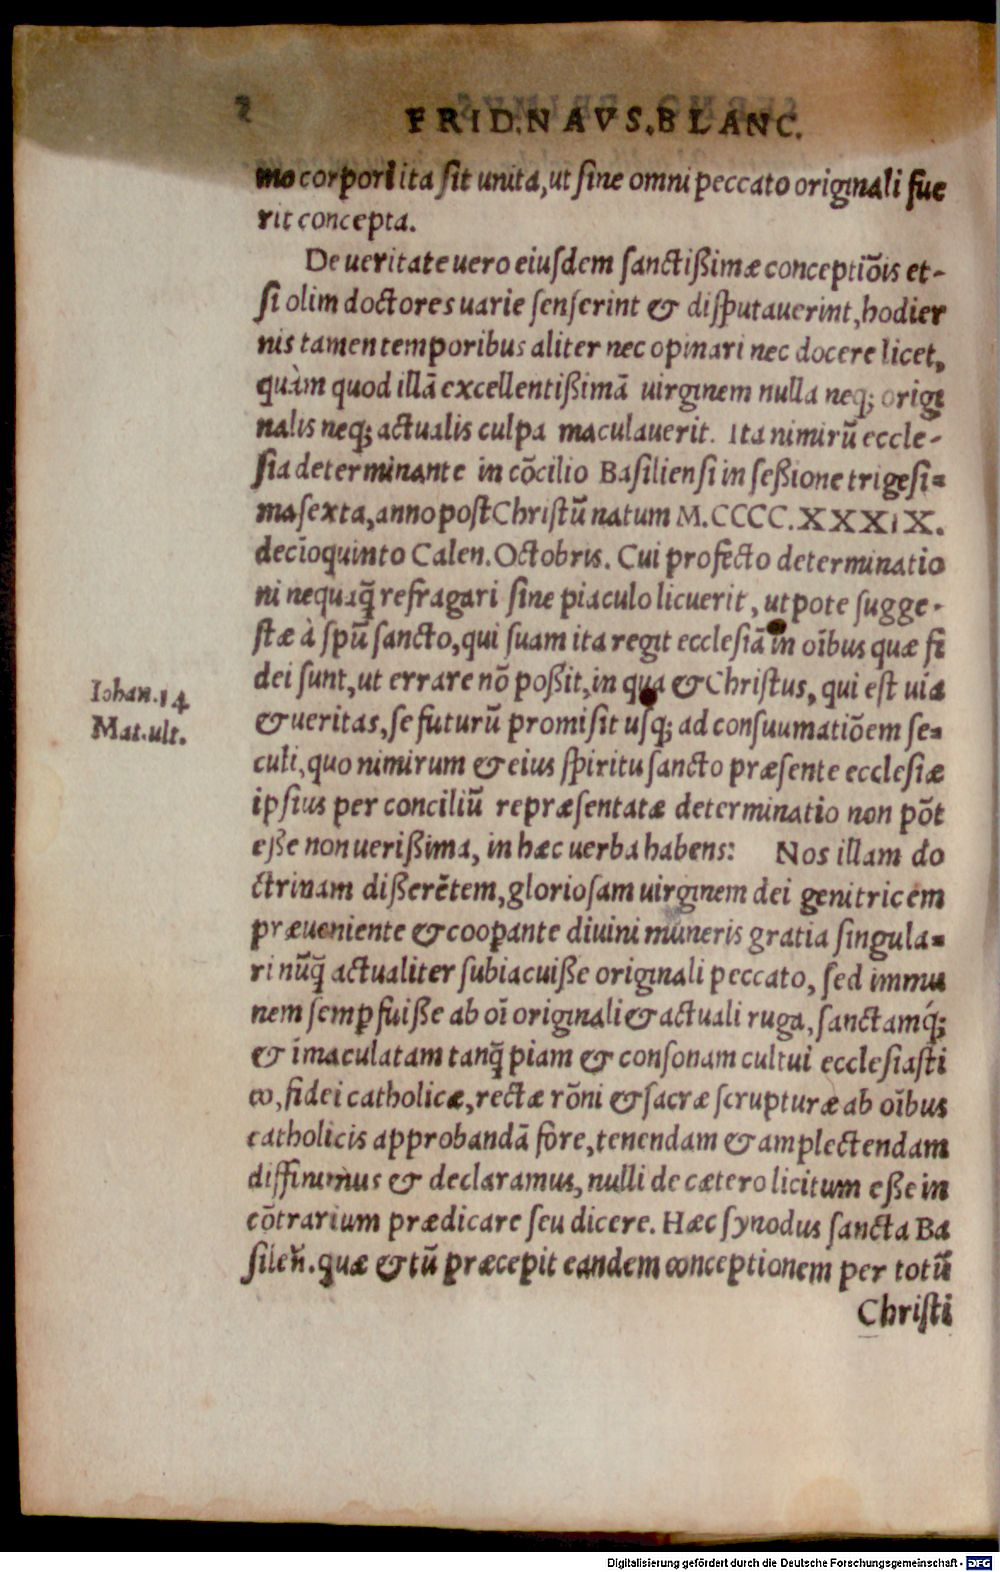 FRID. NAVS. BLANC.
mo corpori ita sit unita, ut sine omni peccato originali fue
rit concepta.
De ueritate uero eiusdem sanctißimæ conceptiōis et-
si olim doctores uarie senserint & disputauerint, hodier
nis tamen temporibus aliter nec opinari nec docere licet,
quàm quod illā excellentißimā uirginem nulla neq; origi
nalis neq; actualis culpa maculauerit. Ita nimirū eccle-
sia determinante in cōcilio Basiliensi in seßione trigesi=
masexta, anno post Christū natum M.CCCC.XXXIX.
decīoquinto Calen. Octobris. Cui profecto determinatio
ni nequaq̄ refragari sine piaculo licuerit, utpote sugge-
stæ à spū sancto, qui suam ita regit ecclesiā in oībus quæ fi
dei sunt, ut errare nō poßit, in qua & Christus, qui est uia
& ueritas, se futurū promisit usq; ad consuumatiōem se=
culi, quo nimirum & eius spiritu sancto præsente ecclesiæ
ipsius per conciliū repræsentatæ determinatio non pōt
eße non uerißima, in hæc uerba habens: Nos illam do
ctrinam dißerētem, gloriosam uirginem dei genitricem
præueniente & coop̱ante diuini muneris gratia singula=
ri nūq̄ actualiter subiacuiße originali peccato, sed immu
nem semp̱ fuiße ab oī originali & actuali ruga, sanctamq́;
& īmaculatam tanq̄ piam & consonam cultui ecclesiasti
co, fidei catholicæ, rectæ rōni & sacræ scrupturæ ab oībus
catholicis approbandā fore, tenendam & amplectendam
diffinimus & declaramus, nulli de cætero licitum eße in
cōtrarium prædicare seu dicere. Hæc synodus sancta Ba
sileñ. quæ & tū præcepit eandem conceptionem per totū
Christi
Iohan. 14
Mat. ult.
Digitalisierung gefördert durch die Deutsche Forschungsgemeinschaft - DFG